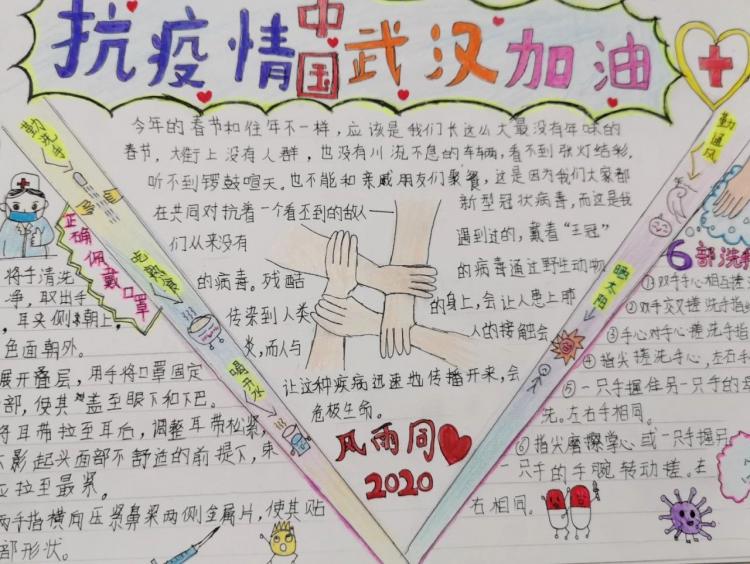 抗疫情 中国 武汉加油
今年的春节和住年不一样，应该是我们长这么大最没有年味的
春节，大街上没有人群，也没有川流不息的车辆，看不到张灯结彩，
听不到锣鼓喧天。也不能和亲戚朋友们聚餐，这是因为我们大家都
在共同对抗着一个看不到的敌人——新型冠状病毒，而这是我
们从来没有遇到过的，戴着"王冠"
的病毒。残酷的病毒通过野生动物
传染到人类的身上，会让人患上肺
炎，而人与人的接触会
让这种疾病迅速地传播开来，会
危极生命。
风雨同
2020
勤洗手
吃熟食
喝开水
勤通风
晒太阳
正确佩戴口罩
将手清洗
净，取出手
，耳夹侧朝上，
色面朝外。
展开叠层，用手将口罩固定
部，使其盖至眼下和下巴。
将耳带拉至耳后，调整耳带松紧，
不影起头面部不舒适的前提下，束
应拉至最紧。
两手指横向压紧鼻梁两侧金属片，使其贴
部形状。
6部洗
①双手手心相互搓洗
②双手交叉搓洗手指
③手心对手心搓洗手指
④指尖搓洗手心，左右手
⑤一只手握住另一只手的
洗。左右手相同。
⑥指尖磨擦掌心或一只手握另
一只手的手腕转动搓。左
右相同。